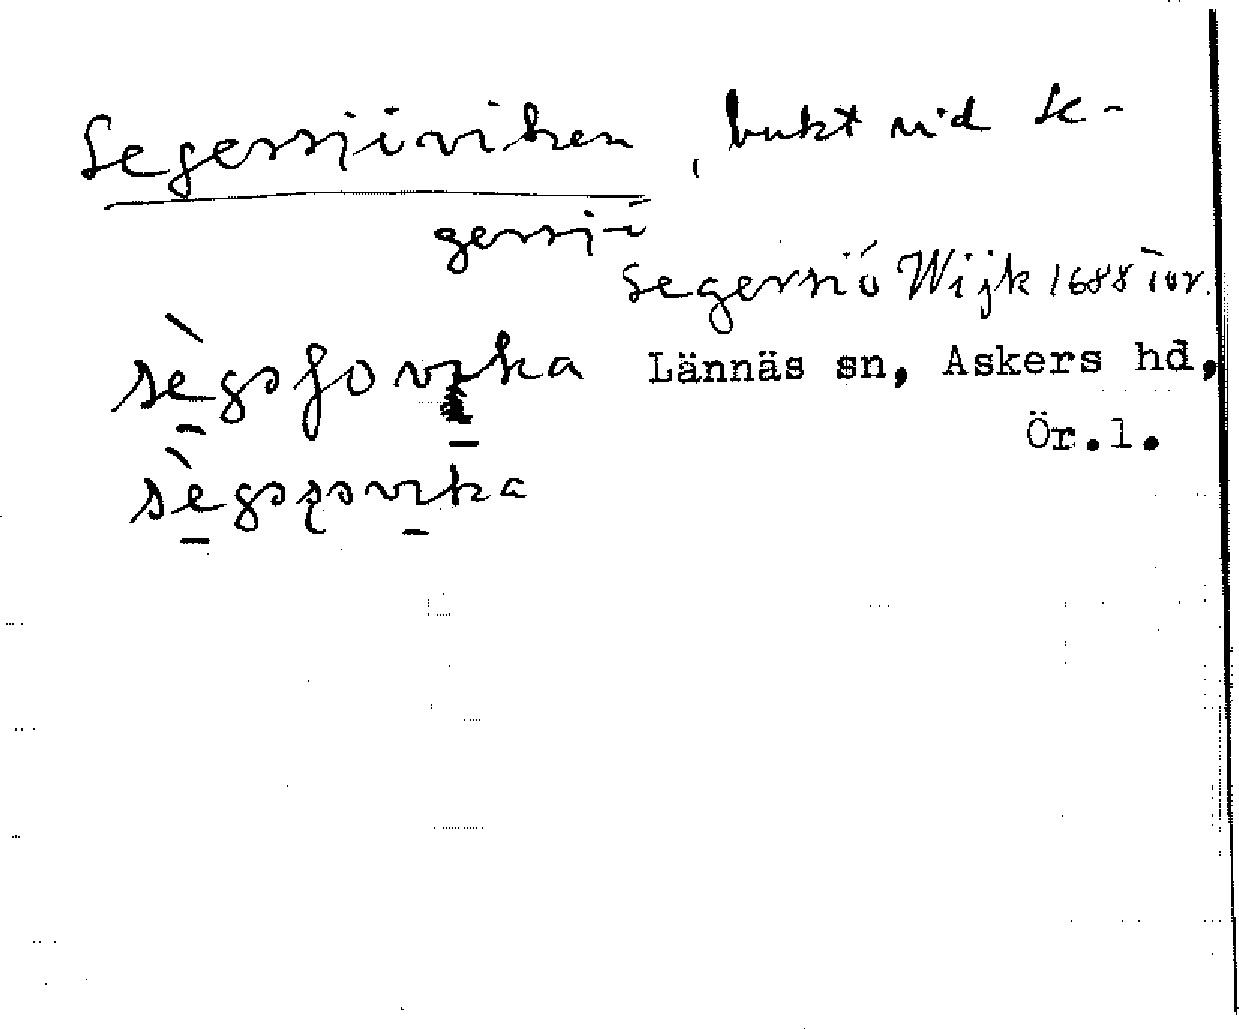 Segersjöviken, bukt vid Se-
gersjö
Segersiö Wijk 1688 jor.
sègsʃovika Lännäs sn, Askers hd,
Ör.l.